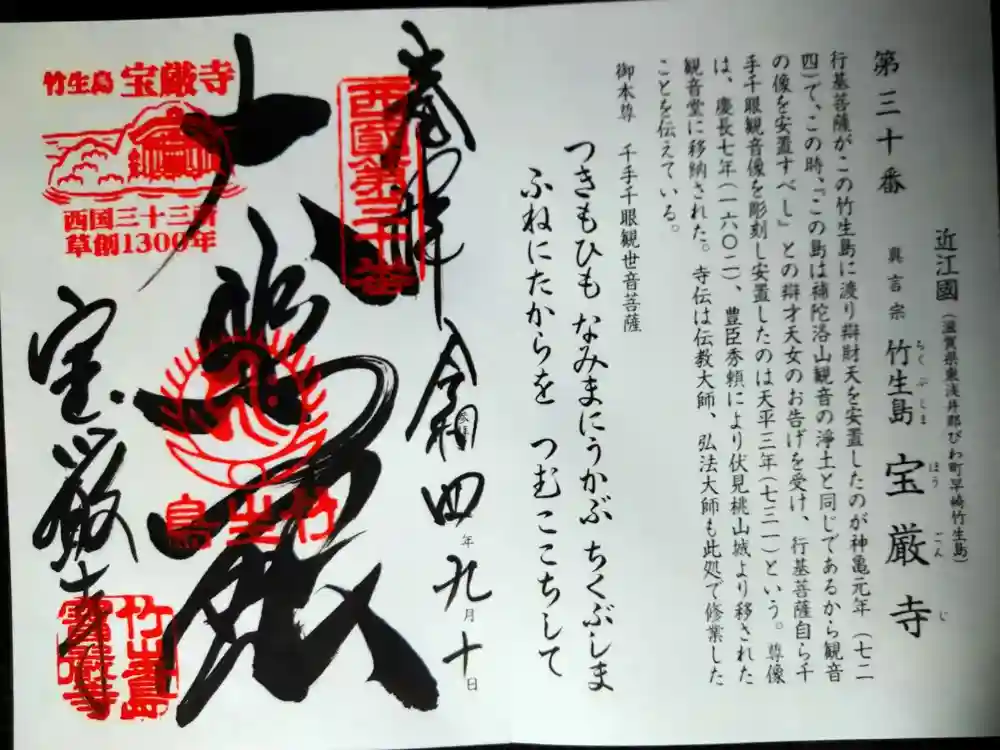 第三十番
近江國（滋賀県東浅井郡びわ町早崎竹生島）
真言宗 竹生島 宝厳寺
ちくぶしま ほうごんじ
行基菩薩がこの竹生島に渡り辯財天を安置したのが神亀元年（七二
四）で、この時、『この島は補陀洛山観音の浄土と同じであるから観音
の像を安置すべし』との辯才天女のお告げを受け、行基菩薩自ら千
手千眼観音像を彫刻し安置したのは天平三年（七三一）という。尊像
は、慶長七年（一六〇二）、豊臣秀頼により伏見桃山城より移された
観音堂に移納された。寺伝は伝教大師、弘法大師も此処で修業した
ことを伝えている。
御本尊 千手千眼観世音菩薩
つきもひも なみまにうかぶ ちくぶしま
ふねにたからを つむここちして
奉拝 令和四年九月十日
参拝
西國第三十番
大悲殿
竹生島
宝厳寺
竹生島 宝厳寺
西国三十三所
草創1300年
竹生島
寶厳寺